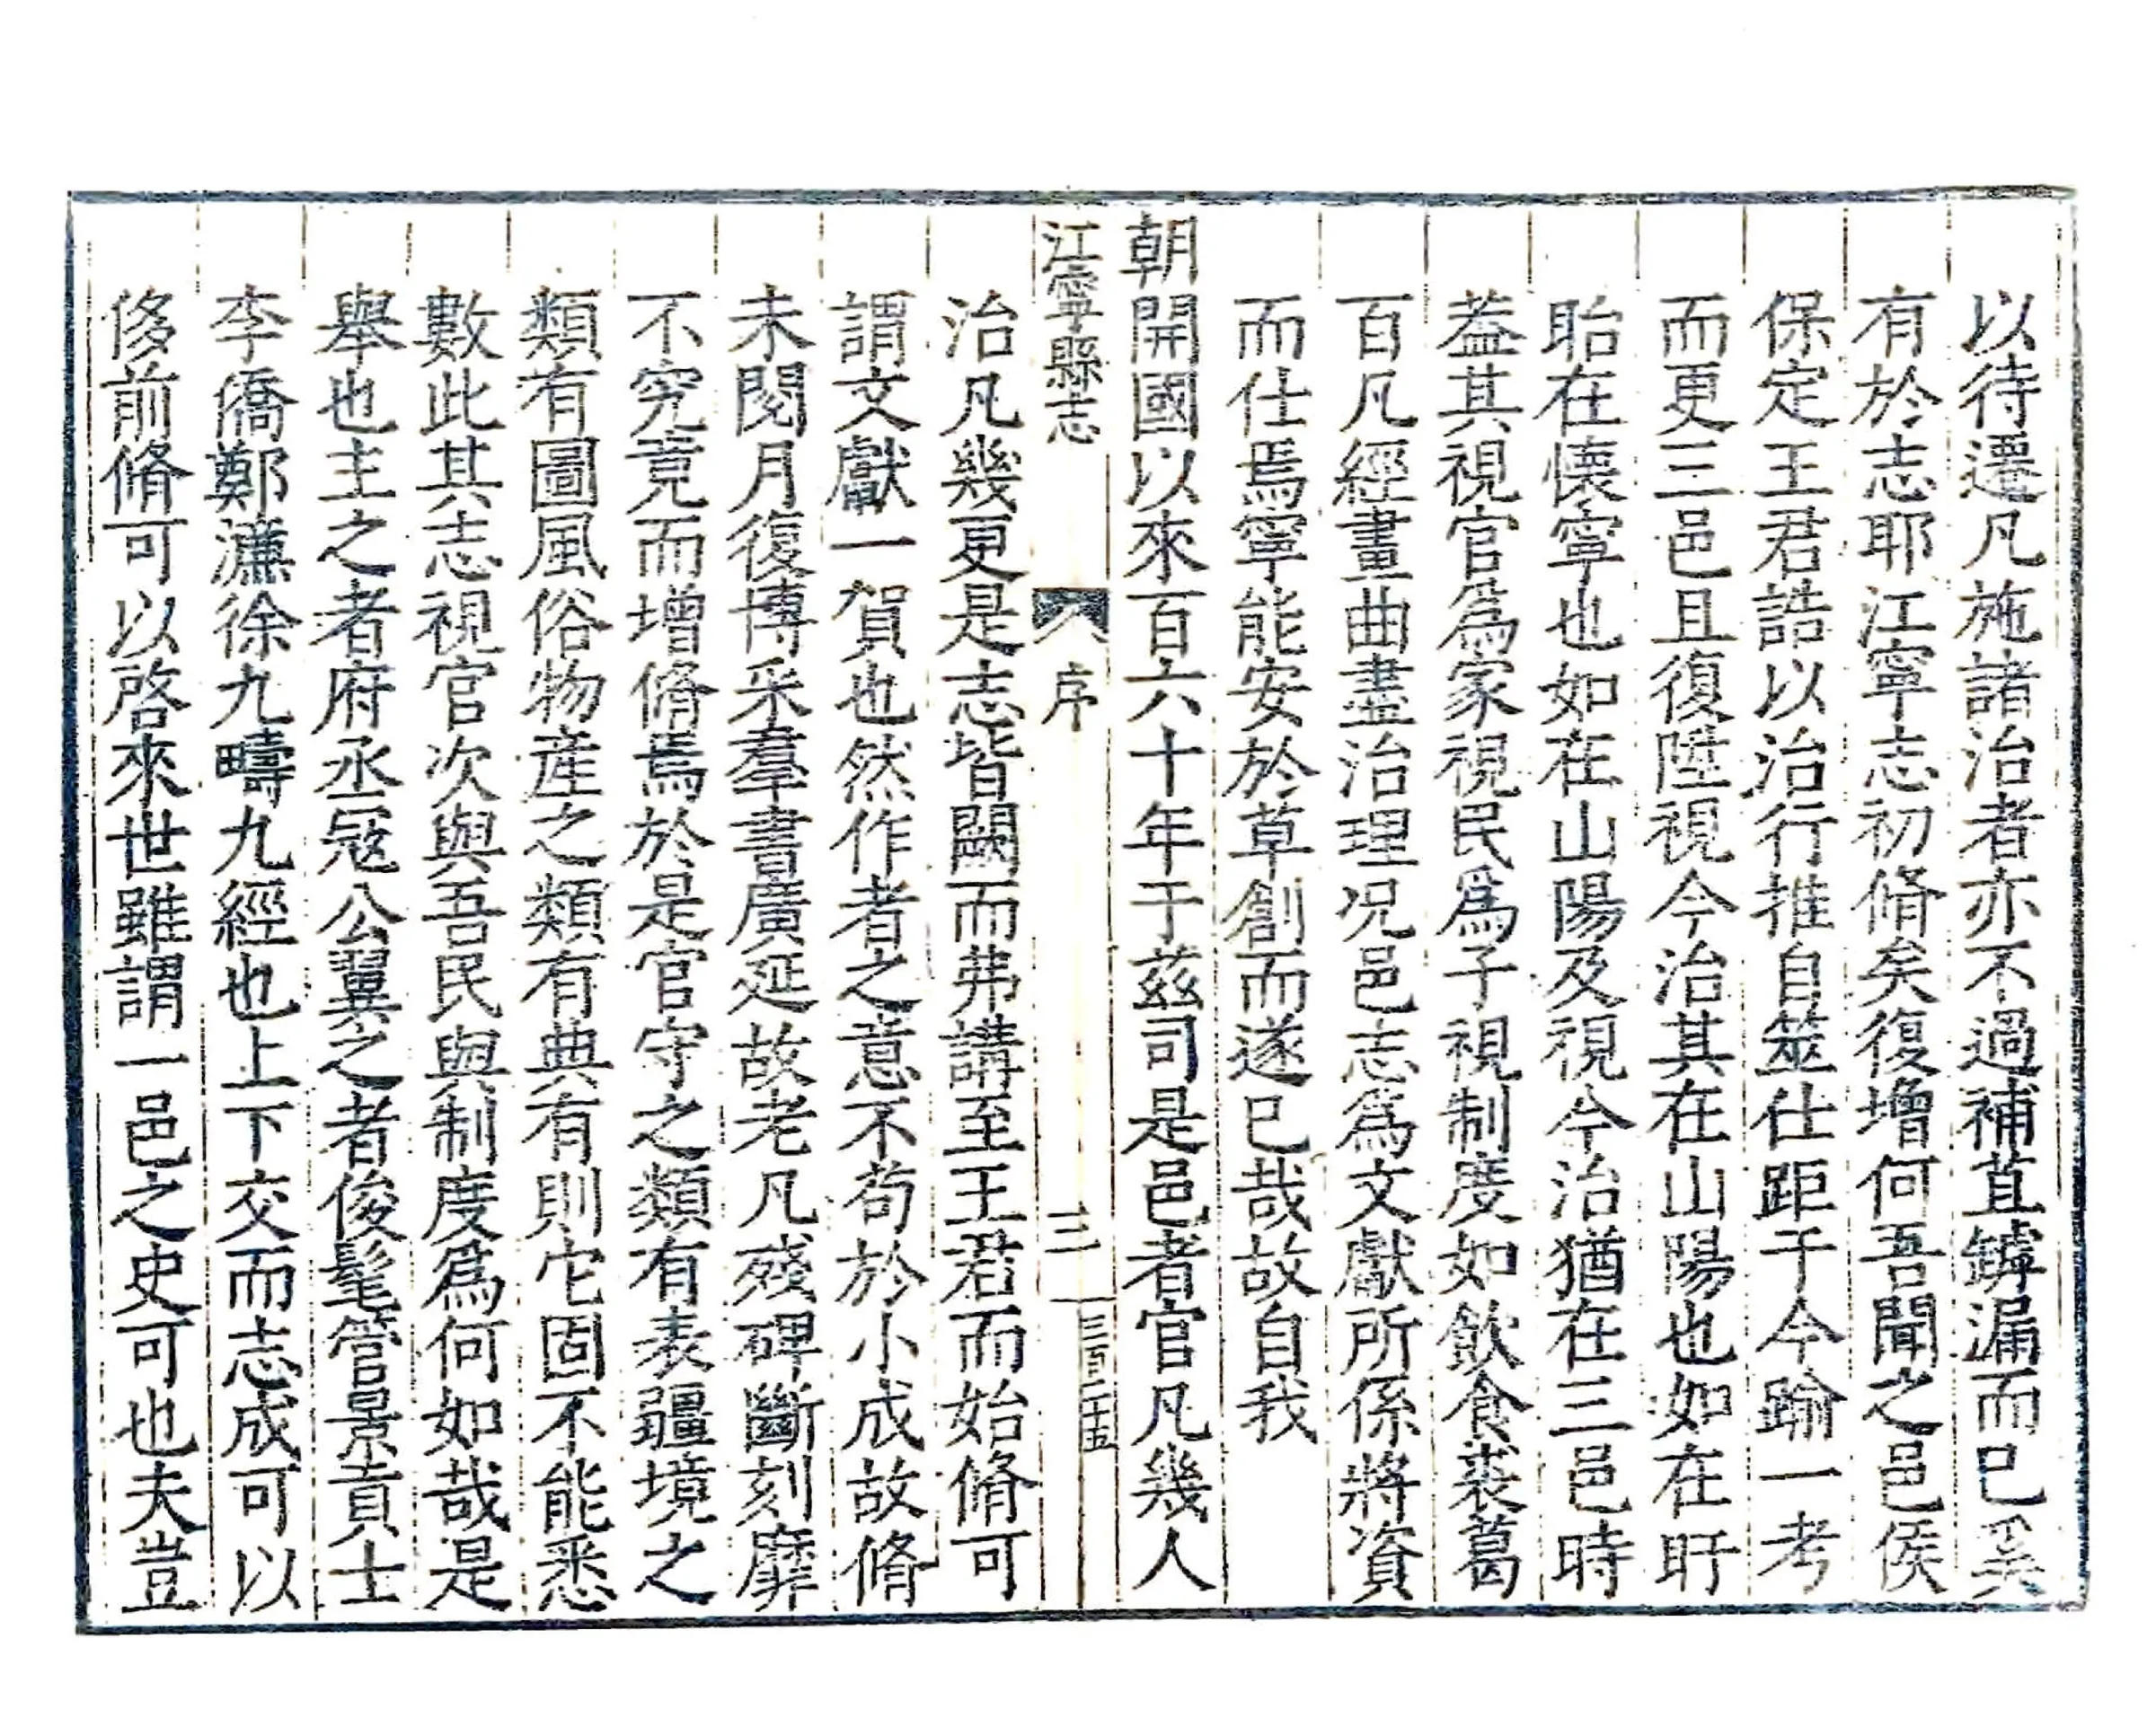 以待遷凡施諸治者亦不過補苴罅漏而已奚
有於志耶江寧志初脩矣復增何吾聞之邑侯
保定王君誥以治行推自筮仕距于今踰一考
而更三邑且復陞視今治其在山陽也如在盱
眙在懷寧也如在山陽及視今治猶在三邑時
葢其視官爲家視民爲子視制度如飲食裘葛
百凡經畫曲盡治理况邑志爲文獻所係將資
而仕焉寧能安於草創而遂已哉故自我
朝開國以來百六十年于茲司是邑者官凡幾人
江寧縣志
序
三
三百二十五
治凡幾更是志皆闕而弗講至王君而始脩可
謂文獻一賀也然作者之意不苟於小成故脩
未閱月復博采羣書廣延故老凡殘碑斷刻靡
不究竟而增脩焉於是官守之類有表疆境之
類有圖風俗物產之類有典有則它固不能悉
數此其志視官次與吾民與制度爲何如哉是
舉也主之者府丞寇公翼之者俊髦管景貢士
李僑鄭濂徐九疇九經也上下交而志成可以
侈前脩可以啓來世雖謂一邑之史可也夫豈